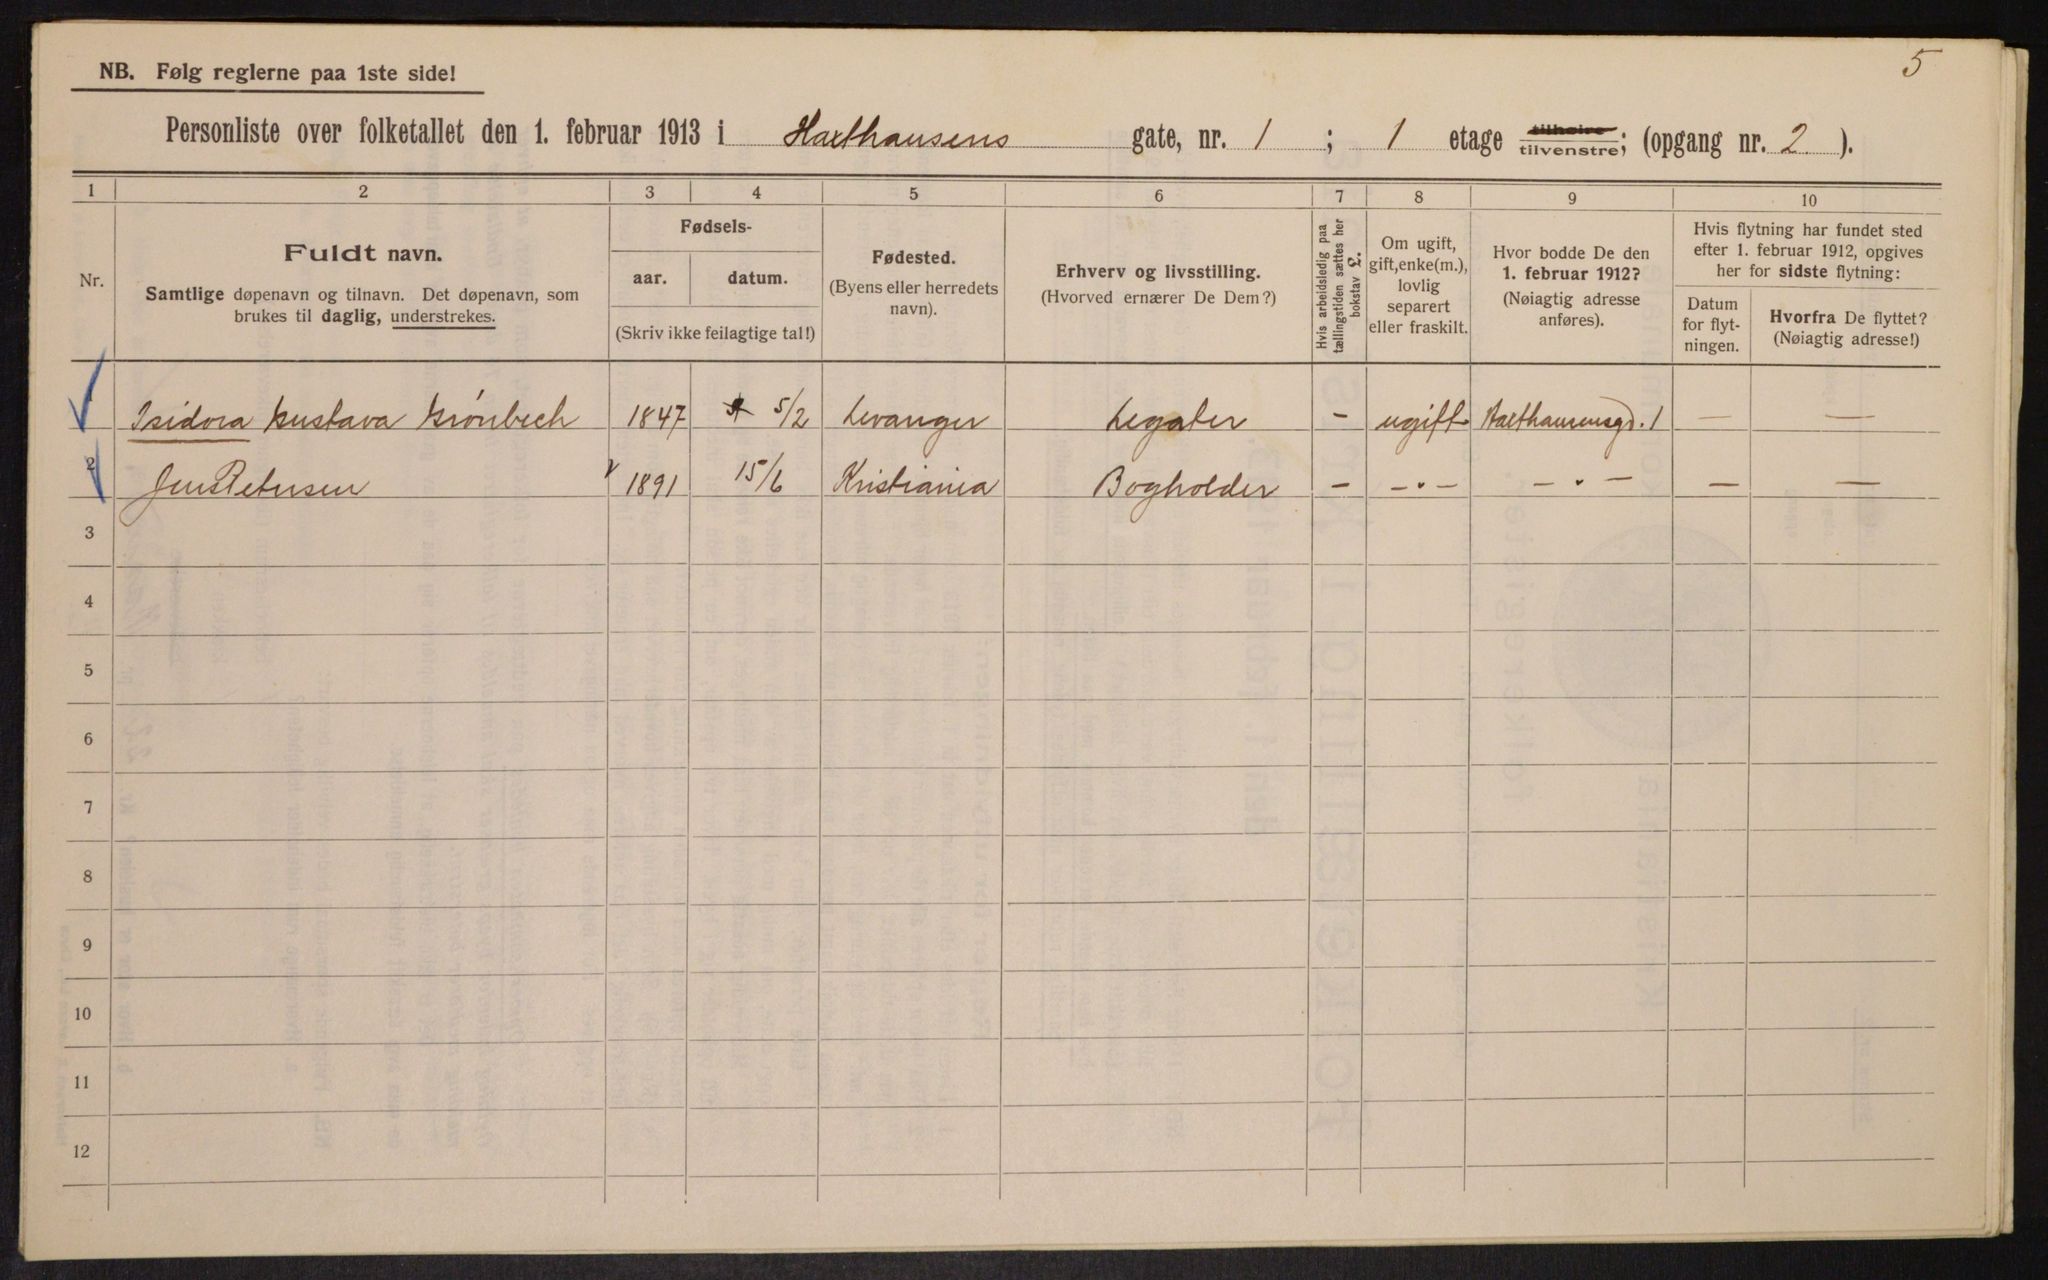 5
NB. Følg reglerne paa 1ste side!
Personliste over folketallet den 1. februar 1913 i Haxthausens gate, nr. 1 ; 1 etage tilhøire tilvenstre; (opgang nr. 2 ).
1 2 3 4 5 6 7 8 9 10
Nr.
Fuldt navn.
Samtlige døpenavn og tilnavn. Det døpenavn, som
brukes til daglig, understrekes.
Fødsels-
aar. datum.
(Skriv ikke feilagtige tal!)
Fødested.
(Byens eller herredets
navn).
Erhverv og livsstilling.
(Hvorved ernærer De Dem?)
Hvis arbeidsledig paa
tællingstiden sættes her
bokstav L.
Om ugift,
gift, enke(m.),
lovlig
separert
eller fraskilt.
Hvor bodde De den
1. februar 1912?
(Nøiagtig adresse
anføres).
Hvis flytning har fundet sted
efter 1. februar 1912, opgives
her for sidste flytning:
Datum
for flyt-
ningen.
Hvorfra De flyttet?
(Nøiagtig adresse!)
1 Isidora Gustava Grönbech 1847 5/2 Levanger Legater - ugift Haxthausensgd. 1 — —
2 Jens Petersen 1891 15/6 Kristiania Bogholder - -"- -"- — —
3
4
5
6
7
8
9
10
11
12